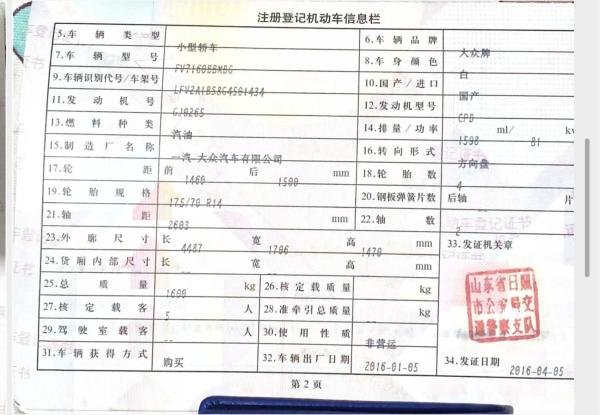 注册登记机动车信息栏
5.车辆类型 小型轿车 6.车辆品牌 大众牌
7.车辆型号 FV7160BBMBG 8.车身颜色 白
9.车辆识别代号/车架号 LFV2A1BS8G4591434 10.国产/进口 国产
11.发动机号 GJ0265 12.发动机型号 CPD
13.燃料种类 汽油 14.排量/功率 1598 ml/ 81 kw
15.制造厂名称 一汽-大众汽车有限公司 16.转向形式 方向盘
17.轮距 前 1460 后 1500 mm 18.轮胎数 4
19.轮胎规格 175/70 R14 20.钢板弹簧片数 后轴 片
21.轴距 2603 mm 22.轴数 2
23.外廓尺寸 长 4487 宽 1706 高 1470 mm 33.发证机关章
24.货厢内部尺寸 长 -- 宽 -- 高 -- mm
25.总质量 1600 kg 26.核定载质量 -- kg
27.核定载客 5 人 28.准牵引总质量 -- kg
29.驾驶室载客 -- 人 30.使用性质 非营运
31.车辆获得方式 购买 32.车辆出厂日期 2016-01-05 34.发证日期 2016-04-05
山东省日照
市公安局交
通警察支队
第2页